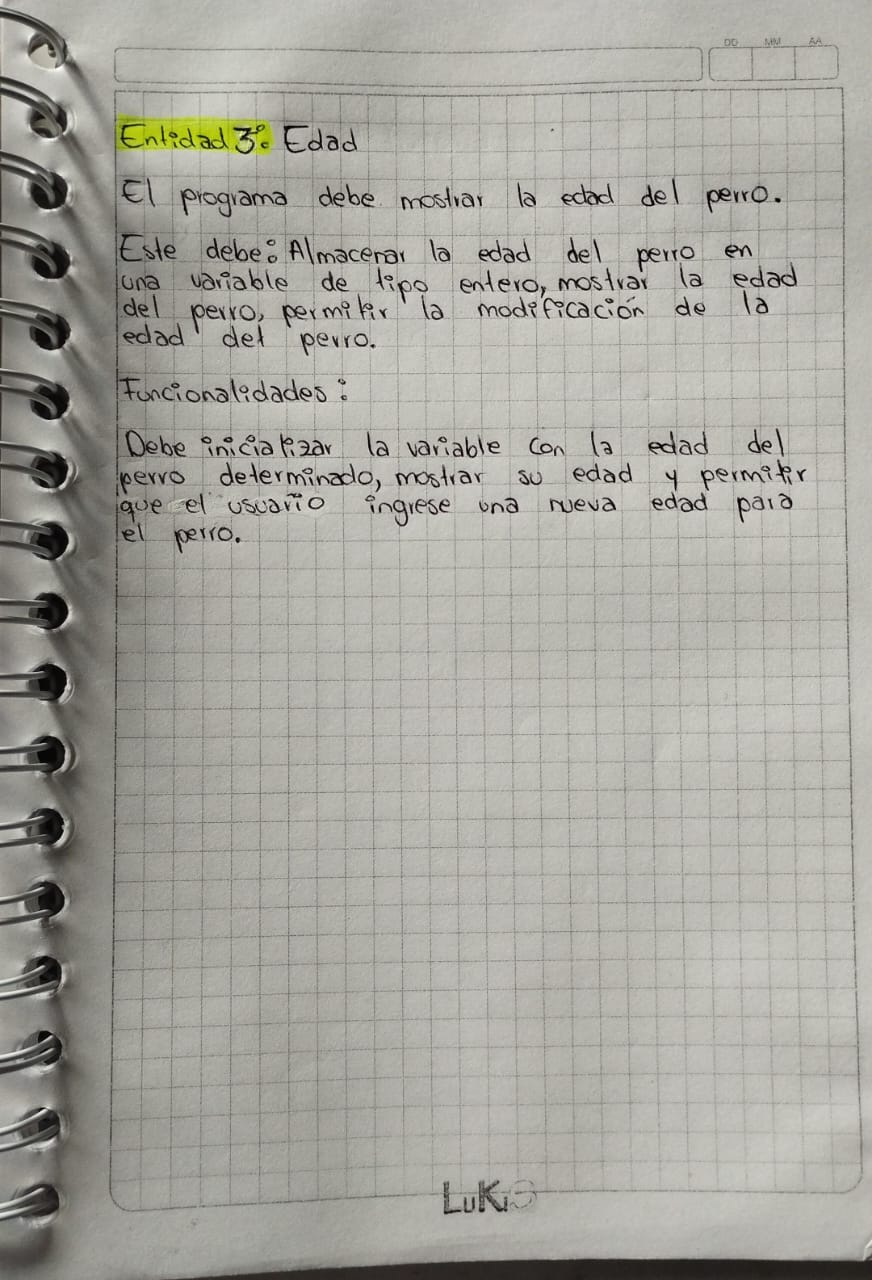 DD MM AA
Entidad 3: Edad
El programa debe mostrar la edad del perro.
Este debe: Almacenar la edad del perro en
una variable de tipo entero, mostrar la edad
del perro, permitir la modificación de la
edad del perro.
Funcionalidades:
Debe inicializar la variable con la edad del
perro determinado, mostrar su edad y permitir
que el usuario ingrese una nueva edad para
el perro.
LuKiS